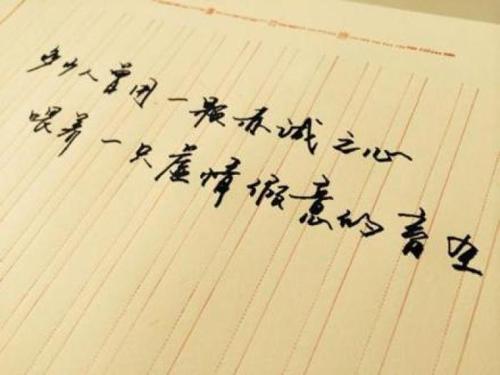 多少人曾用一颗赤诚之心
喂养一只虚情假意的畜生